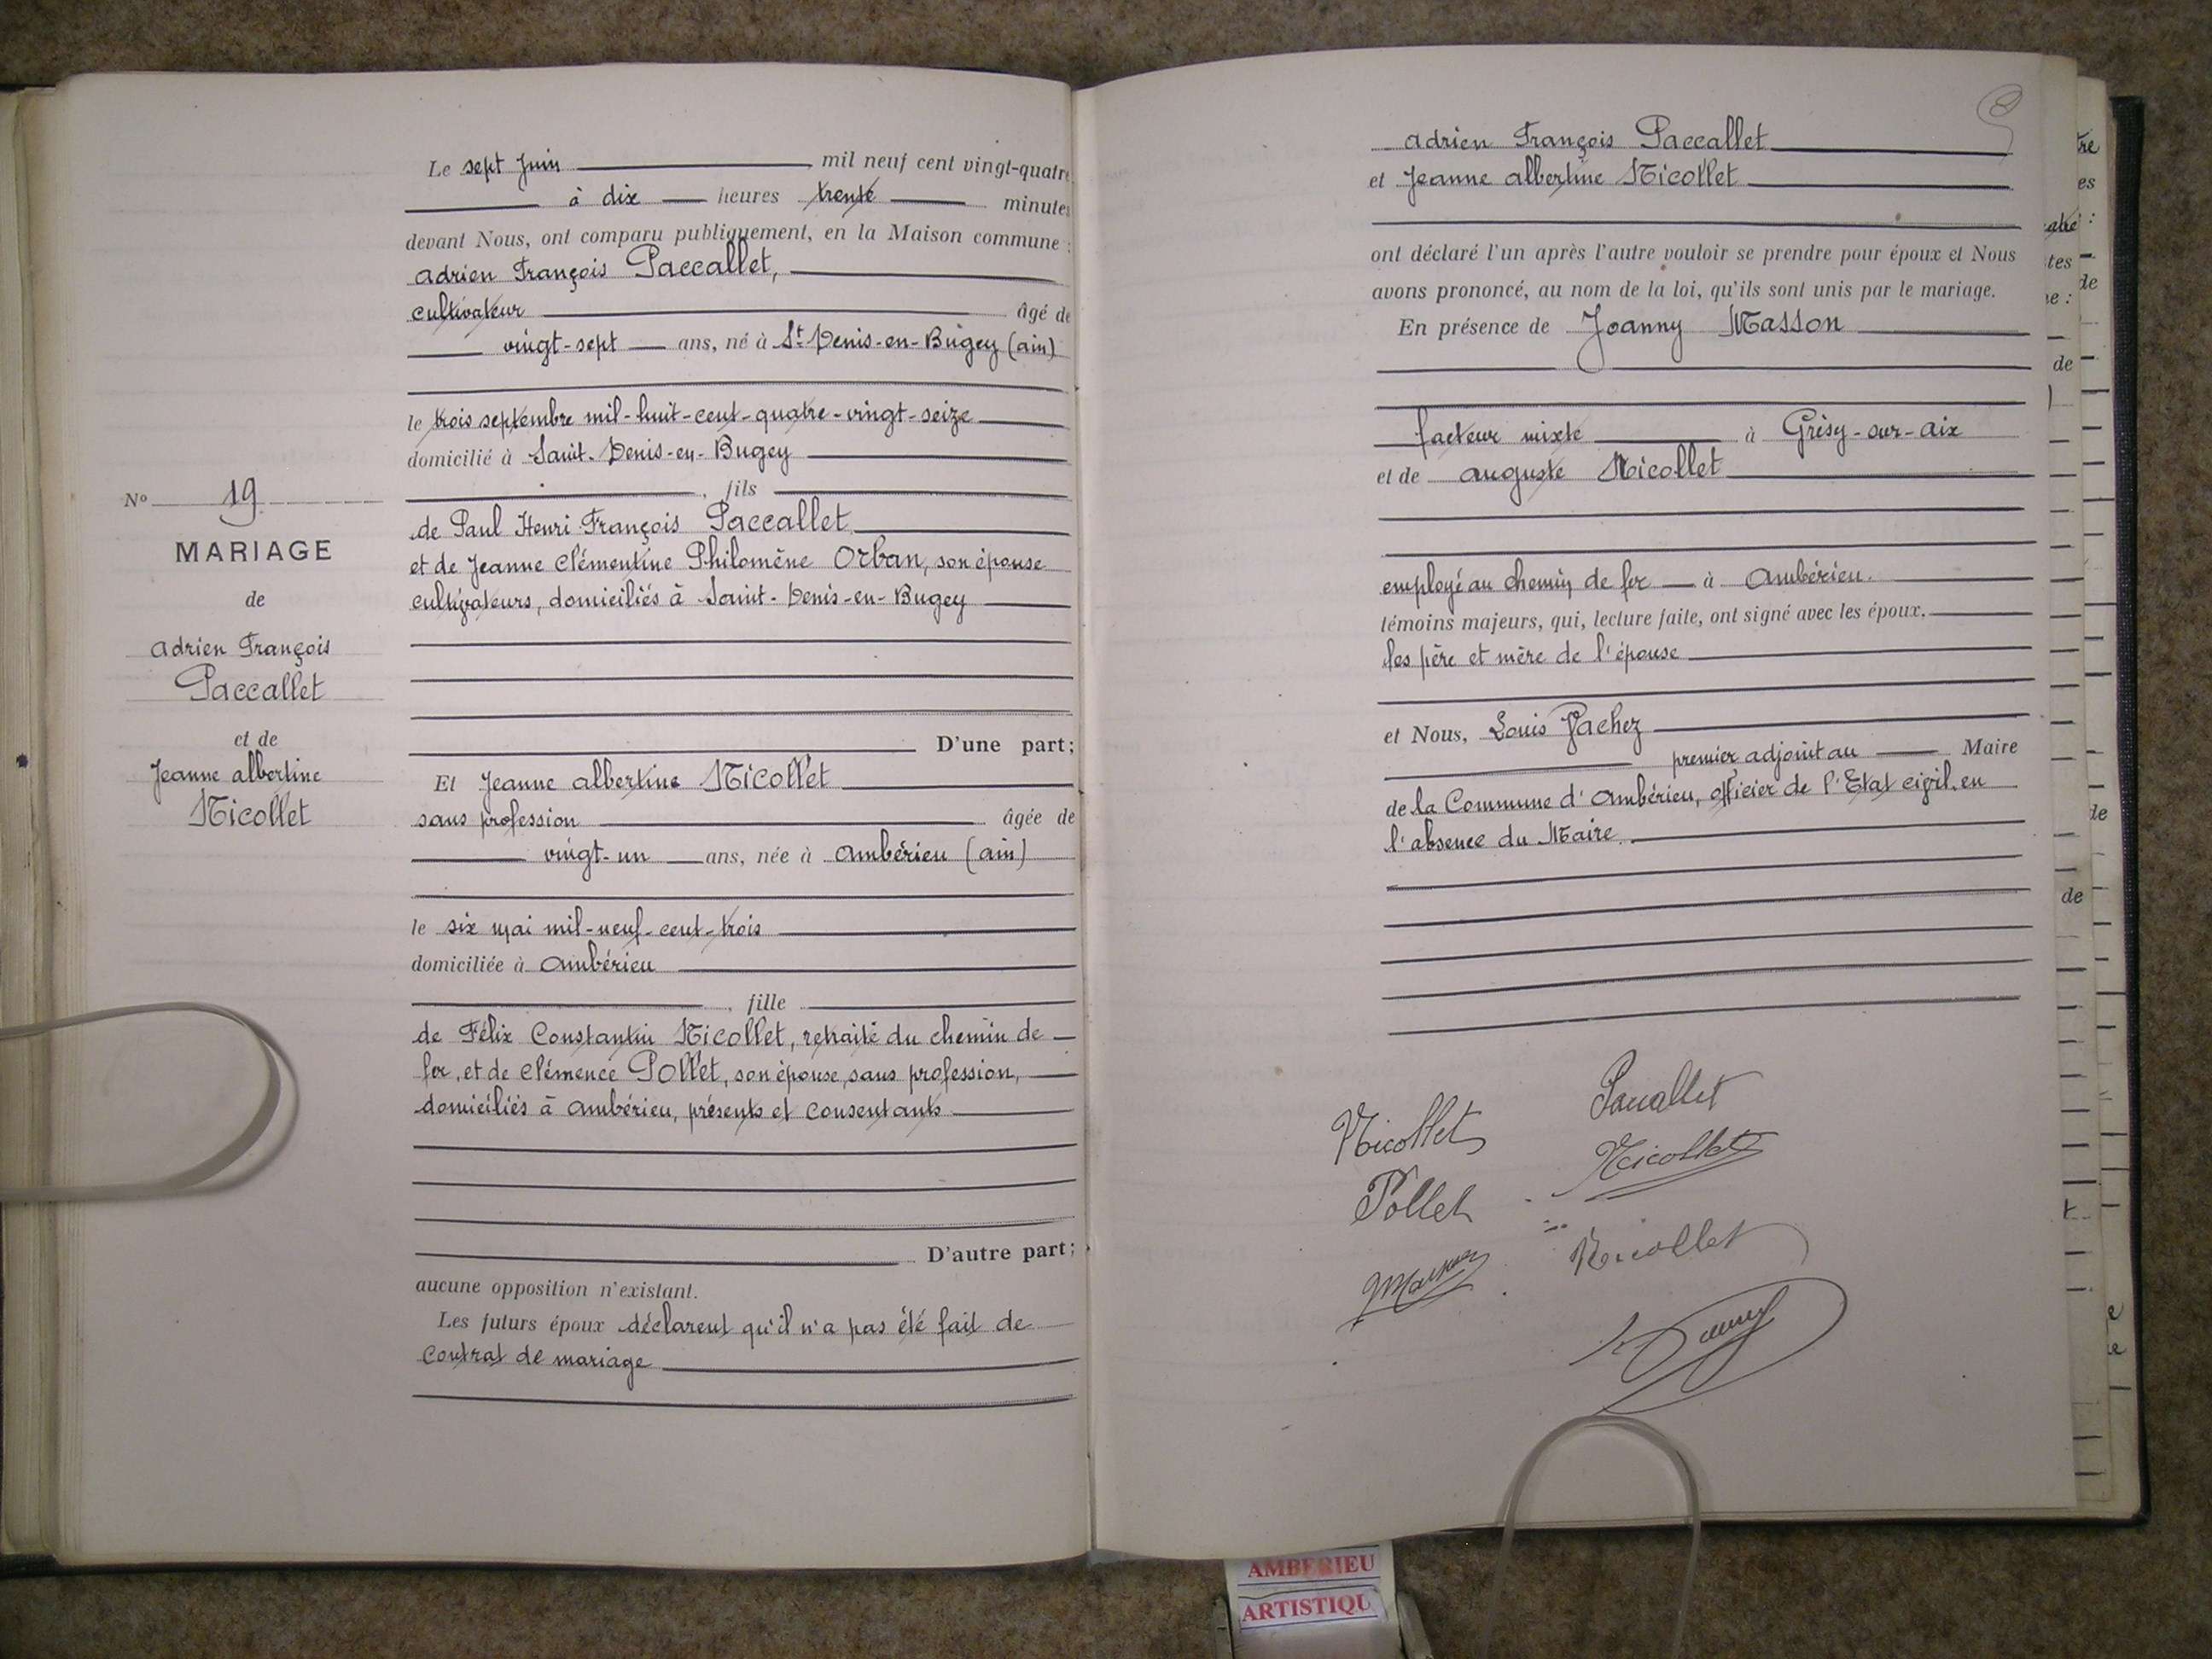 Le sept Juin mil neuf cent vingt-quatre
à dix heures trente minutes
devant Nous, ont comparu publiquement, en la Maison commune :
Adrien François Paccallet,
cultivateur âgé de
vingt-sept ans, né à St Denis-en-Bugey (Ain)
le trois septembre mil-huit-cent-quatre-vingt-seize
domicilié à Saint-Denis-en-Bugey
, fils
de Paul Henri François Paccallet
et de Jeanne Clémentine Philomène Orban, son épouse
cultivateurs, domiciliés à Saint-Denis-en-Bugey
D'une part;
Et Jeanne Albertine Nicollet
sans profession âgée de
vingt-un ans, née à Ambérieu (Ain)
le six mai mil-neuf-cent-trois
domiciliée à Ambérieu
, fille
de Félix Constantin Nicollet, retraité du chemin de
fer, et de Clémence Pollet, son épouse, sans profession,
domiciliés à Ambérieu, présents et consentants
D'autre part;
aucune opposition n'existant.
Les futurs époux déclarent qu'il n'a pas été fait de
contrat de mariage
No 19
MARIAGE
de
Adrien François
Paccallet
et de
Jeanne Albertine
Nicollet
Adrien François Paccallet
et Jeanne Albertine Nicollet
ont déclaré l'un après l'autre vouloir se prendre pour époux et Nous
avons prononcé, au nom de la loi, qu'ils sont unis par le mariage.
En présence de Joanny Masson
facteur mixte à Grésy-sur-Aix
et de Auguste Nicollet
employé au chemin de fer à Ambérieu.
témoins majeurs, qui, lecture faite, ont signé avec les époux.
les père et mère de l'épouse
et Nous, Louis Pachez
premier adjoint au Maire
de la Commune d'Ambérieu, officier de l'Etat civil, en
l'absence du Maire.
Paccallet
Nicollet
Nicollet
Pollet
Nicollet
JMasson
AMBERIEU
ARTISTIQU